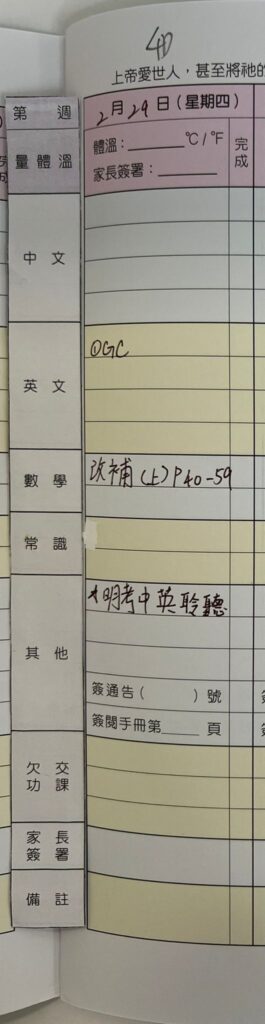 4D
上帝愛世人，甚至將祂的
第 週
2月29日(星期四)
量體溫
體溫：______°C/°F
家長簽署：______
完成
中文
英文
①GC
數學
改補(上)P40-59
常識
其他
*明考中英聆聽
簽通告( )號
簽閱手冊第____頁
欠交功課
家長簽署
備註